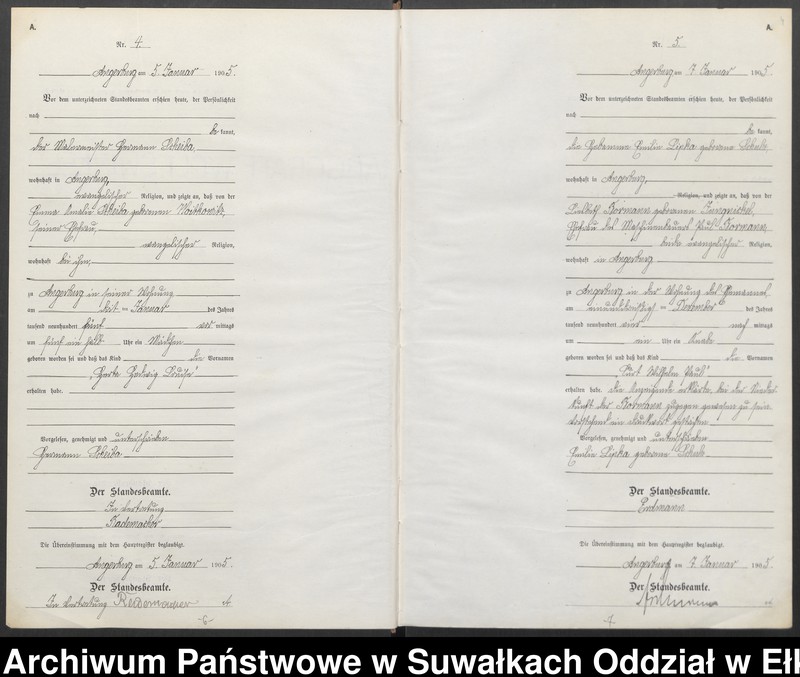 A.
Nr. 4.
Angerburg am 5. Januar 1905.
Vor dem unterzeichneten Standesbeamten erschien heute, der Persönlichkeit
nach
be kannt,
der Malermeister Hermann Skeiba
wohnhaft in Angerburg,
evangelischer Religion, und zeigte an, daß von der
Emma Amalie Skeiba geborenen
seiner Ehefrau,
evangelischer Religion,
wohnhaft bei ihm,
zu Angerburg in seiner Wohnung
am Januar des Jahres
tausend neunhundert fünf vor mittags
um fünf ein halb Uhr ein Mädchen
geboren worden sei und daß das Kind die Vornamen
Hedwig Louise
erhalten habe.
Vorgelesen, genehmigt und unterschrieben
Hermann Skeiba
Der Standesbeamte.
In Vertretung
Rademacher
Die Übereinstimmung mit dem Hauptregister beglaubigt.
Angerburg am 5. Januar 1905.
Der Standesbeamte.
In Vertretung Rademacher
-6-
A.
Nr. 5.
Angerburg am 7. Januar 1905.
Vor dem unterzeichneten Standesbeamten erschien heute, der Persönlichkeit
nach
be kannt,
die Hebamme Emilie Lipka geborene
wohnhaft in Angerburg,
Religion, und zeigte an, daß von der
Kormann geborenen
Ehefrau des Maschinenbauers Paul Kormann,
beide evangelischer Religion,
wohnhaft in Angerburg
zu Angerburg in der Wohnung des Ehemannes
am November des Jahres
tausend neunhundert vier nach mittags
um ein Uhr ein Knabe
geboren worden sei und daß das Kind die Vornamen
Kurt Wilhelm Paul
erhalten habe. Die Anzeigende erklärte, bei der Nieder-
kunft der Kormann zugegen gewesen zu sein.
Vorgelesen, genehmigt und unterschrieben
Emilie Lipka geborene
Der Standesbeamte.
Erdmann
Die Übereinstimmung mit dem Hauptregister beglaubigt.
Angerburg am 7. Januar 1905.
Der Standesbeamte.
-7-
Archiwum Państwowe w Suwałkach Oddział w Ełk